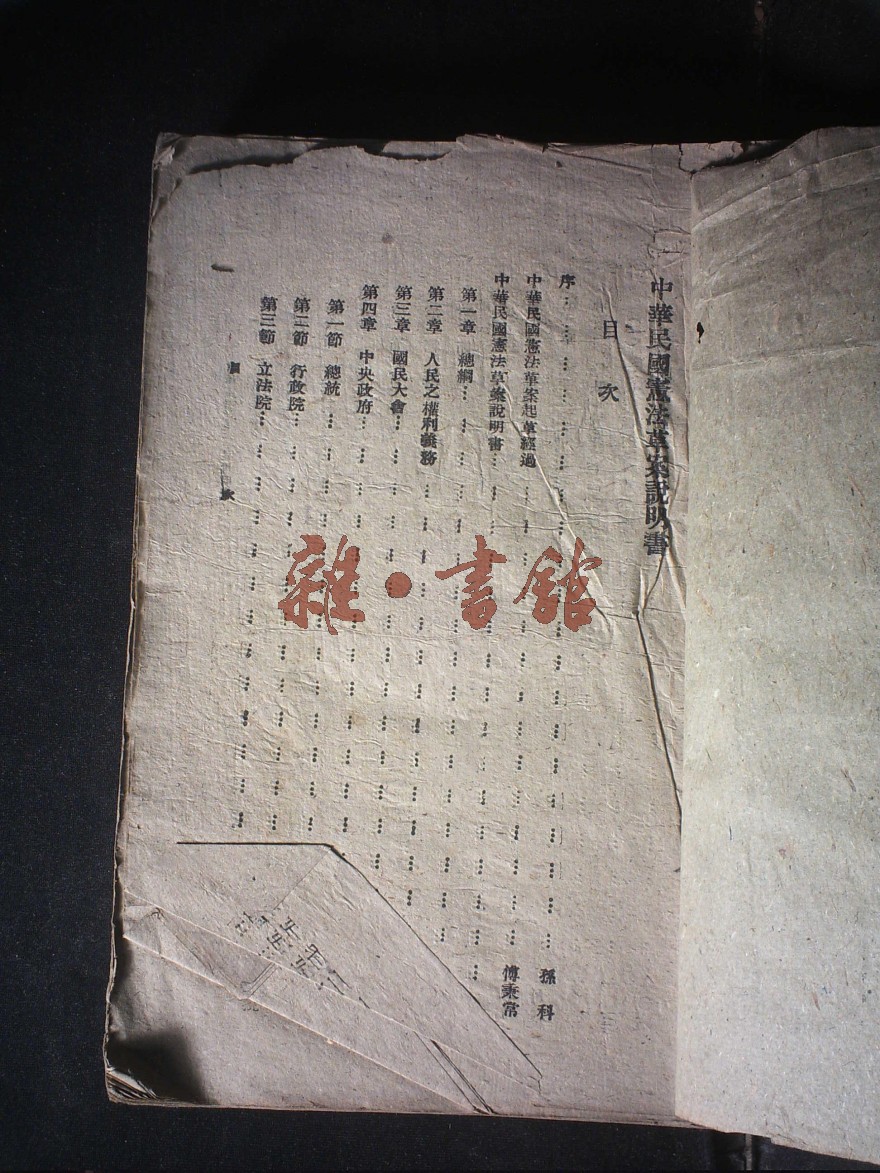 中華民國憲法草案說明書
目次
序 孫科
中華民國憲法草案起草經過 傅秉常
中華民國憲法草案說明書
第一章 總綱
第二章 人民之權利義務
第三章 國民大會
第四章 中央政府
第一節 總統
第二節 行政院
第三節 立法院
目 次
一
雜·書館